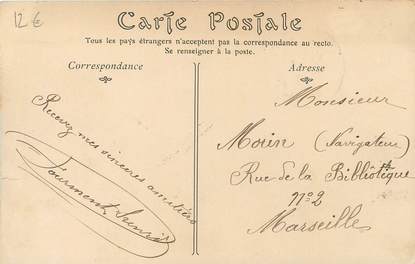 12 €
Carte Postale
Tous les pays étrangers n'acceptent pas la correspondance au recto.
Se renseigner à la poste.
Correspondance
Recevez mes sincères amitiés
Adresse
Monsieur
Morin (Navigateur)
Rue de la Bibliotèque
n° 2
Marseille